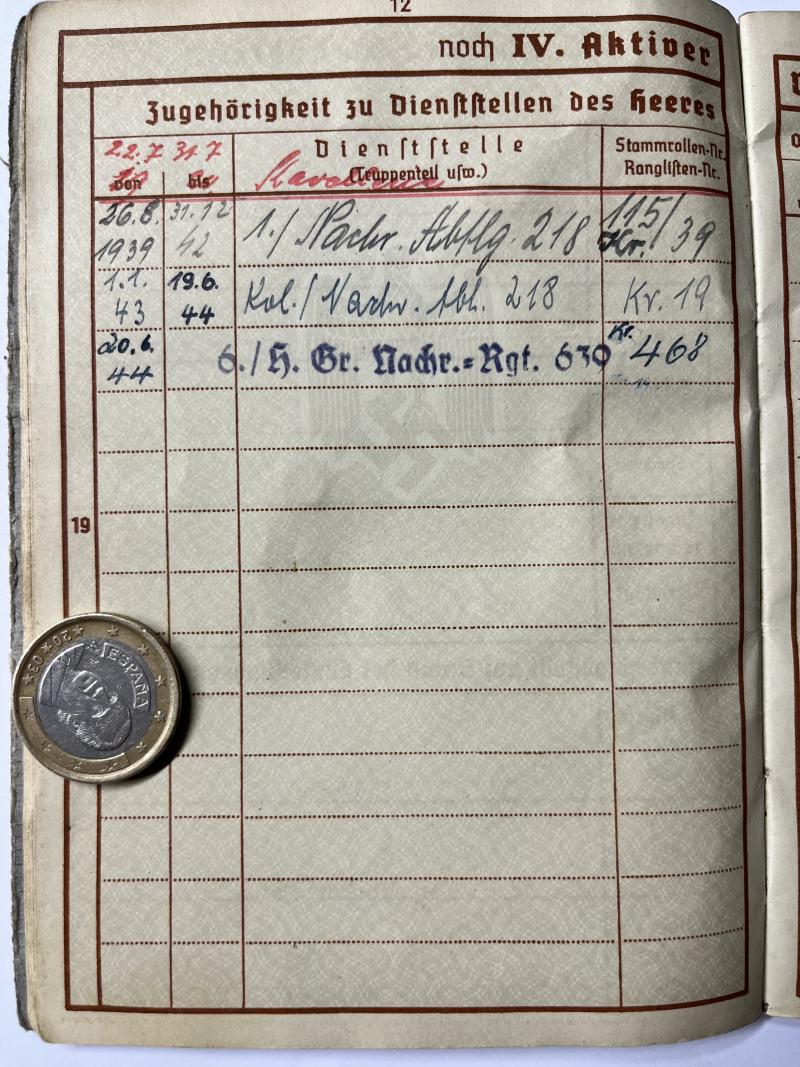 12
noch IV. Aktiver
Zugehörigkeit zu Dienststellen des Heeres
22.7 31.7
von bis
Dienststelle
(Truppenteil usw.)
Stammrollen-Nr.
Ranglisten-Nr.
26.8. 31.12 1./ Nachr. Abtlg. 218 115/
1939 42 Kr. 39
1.1. 19.6. Kol./ Nachr. Abt. 218 Kr. 19
43 44
20.6. 6./H. Gr. Nachr.=Rgt. 639 Kr. 468
44
19
ESPAÑA
2003